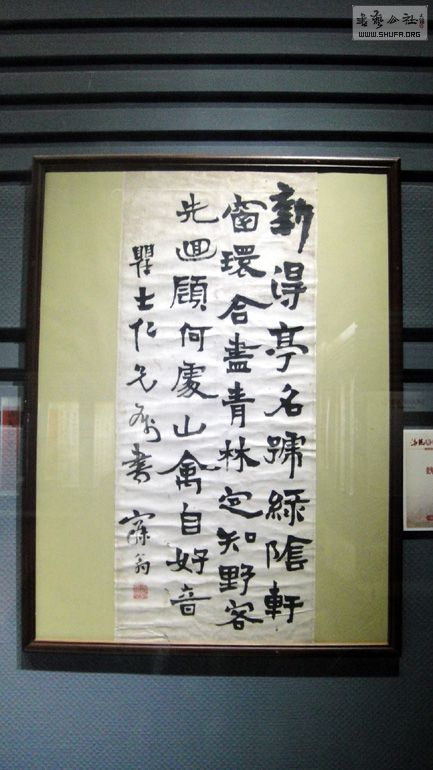 書藝公社
WWW.SHUFA.ORG
新淂亭名號綠隂軒
窗環合盡青林定知野客
先迴顧何處山禽自好音
瞿士仁兄属書
翁